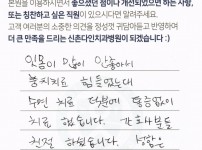 본원을 이용하시면서 좋으셨던 점이나 개선되었으면 하는 사항,
또는 칭찬하고 싶은 직원이 있으시다면 알려주세요.
고객 여러분의 소중한 의견을 정성껏 귀담아듣고 반영하여
더 큰 만족을 드리는 신촌다인치과병원이 되겠습니다 :)
잇몸이 많이 안좋아서
통치지료 힘들었는데
수면 치료 덕분에 통증없이
치료 했습니다. 간호사분들
친절 하셨습니다.